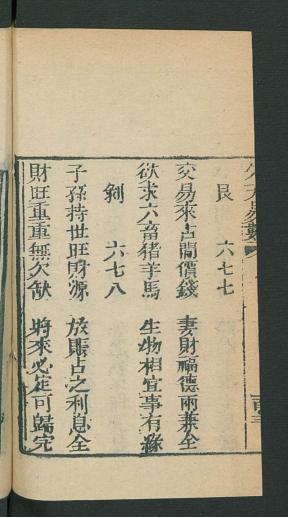 艮 六七七
交易來占開價錢 妻財福德兩兼全
欲求六畜猪羊馬 生物相宜事有緣
剝 六七八
子孫持世旺財源 放賬占之利息全
財旺重重無欠缺 將來必定可歸完